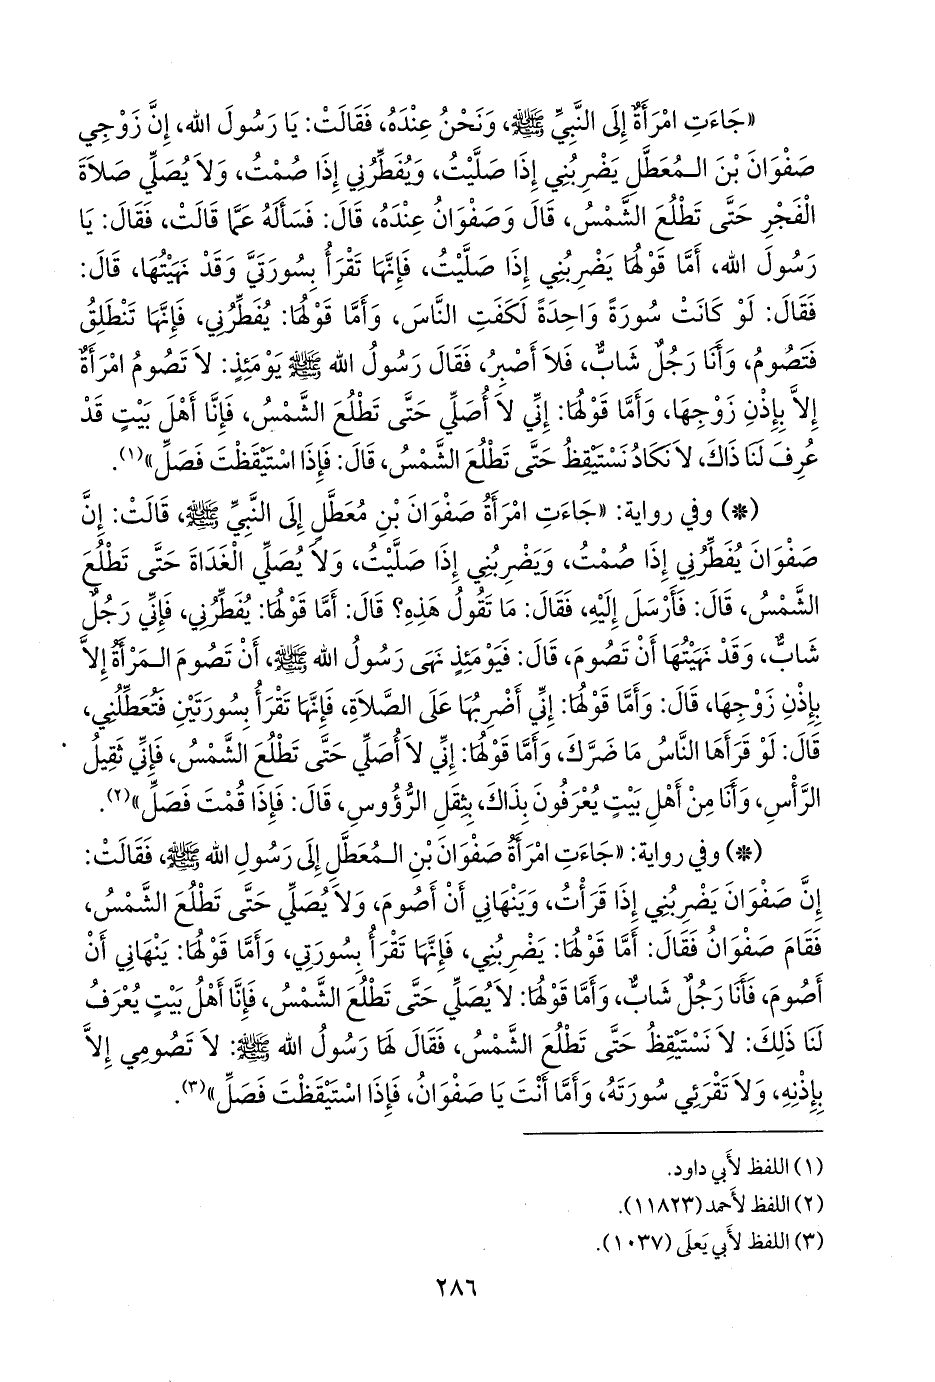 «جَاءَتِ امْرَأَةٌ إِلَى النَّبِيِّ ﷺ، وَنَحْنُ عِنْدَهُ، فَقَالَتْ: يَا رَسُولَ الله، إِنَّ زَوْجِي
صَفْوَانَ بْنَ الـمُعَطَّلِ يَضْرِبُنِي إِذَا صَلَّيْتُ، وَيُفَطِّرُنِي إِذَا صُمْتُ، وَلاَ يُصَلِّي صَلاَةَ
الْفَجْرِ حَتَّى تَطْلُعَ الشَّمْسُ، قَالَ وَصَفْوَانُ عِنْدَهُ، قَالَ: فَسَأَلَهُ عَمَّا قَالَتْ، فَقَالَ: يَا
رَسُولَ الله، أَمَّا قَوْلُهَا يَضْرِبُنِي إِذَا صَلَّيْتُ، فَإِنَّهَا تَقْرَأُ بِسُورَتَيَّ وَقَدْ نَهَيْتُهَا، قَالَ:
فَقَالَ: لَوْ كَانَتْ سُورَةً وَاحِدَةً لَكَفَتِ النَّاسَ، وَأَمَّا قَوْلُهَا: يُفَطِّرُنِي، فَإِنَّهَا تَنْطَلِقُ
فَتَصُومُ، وَأَنَا رَجُلٌ شَابٌّ، فَلاَ أَصْبِرُ، فَقَالَ رَسُولُ الله ﷺ يَوْمَئِذٍ: لاَ تَصُومُ امْرَأَةٌ
إِلاَّ بِإِذْنِ زَوْجِهَا، وَأَمَّا قَوْلُهَا: إِنِّي لاَ أُصَلِّي حَتَّى تَطْلُعَ الشَّمْسُ، فَإِنَّا أَهْلُ بَيْتٍ قَدْ
عُرِفَ لَنَا ذَاكَ، لاَ نَكَادُ نَسْتَيْقِظُ حَتَّى تَطْلُعَ الشَّمْسُ، قَالَ: فَإِذَا اسْتَيْقَظْتَ فَصَلِّ»(١).
(*) وفي رواية: «جَاءَتِ امْرَأَةُ صَفْوَانَ بْنِ مُعَطَّلٍ إِلَى النَّبِيِّ ﷺ، قَالَتْ: إِنَّ
صَفْوَانَ يُفَطِّرُنِي إِذَا صُمْتُ، وَيَضْرِبُنِي إِذَا صَلَّيْتُ، وَلاَ يُصَلِّي الْغَدَاةَ حَتَّى تَطْلُعَ
الشَّمْسُ، قَالَ: فَأَرْسَلَ إِلَيْهِ، فَقَالَ: مَا تَقُولُ هَذِهِ؟ قَالَ: أَمَّا قَوْلُهَا: يُفَطِّرُنِي، فَإِنِّي رَجُلٌ
شَابٌّ، وَقَدْ نَهَيْتُهَا أَنْ تَصُومَ، قَالَ: فَيَوْمَئِذٍ نَهَى رَسُولُ الله ﷺ، أَنْ تَصُومَ الـمَرْأَةُ إِلاَّ
بِإِذْنِ زَوْجِهَا، قَالَ: وَأَمَّا قَوْلُهَا: إِنِّي أَضْرِبُهَا عَلَى الصَّلاَةِ، فَإِنَّهَا تَقْرَأُ بِسُورَتَيْنِ فَتُعَطِّلُنِي،
قَالَ: لَوْ قَرَأَهَا النَّاسُ مَا ضَرَّكَ، وَأَمَّا قَوْلُهَا: إِنِّي لاَ أُصَلِّي حَتَّى تَطْلُعَ الشَّمْسُ، فَإِنِّي ثَقِيلُ
الرَّأْسِ، وَأَنَا مِنْ أَهْلِ بَيْتٍ يُعْرَفُونَ بِذَاكَ، بِثِقَلِ الرُّؤُوسِ، قَالَ: فَإِذَا قُمْتَ فَصَلِّ»(٢).
(*) وفي رواية: «جَاءَتِ امْرَأَةُ صَفْوَانَ بْنِ الـمُعَطَّلِ إِلَى رَسُولِ الله ﷺ، فَقَالَتْ:
إِنَّ صَفْوَانَ يَضْرِبُنِي إِذَا قَرَأْتُ، وَيَنْهَانِي أَنْ أَصُومَ، وَلاَ يُصَلِّي حَتَّى تَطْلُعَ الشَّمْسُ،
فَقَامَ صَفْوَانُ فَقَالَ: أَمَّا قَوْلُهَا: يَضْرِبُنِي، فَإِنَّهَا تَقْرَأُ بِسُورَتِي، وَأَمَّا قَوْلُهَا: يَنْهَانِي أَنْ
أَصُومَ، فَأَنَا رَجُلٌ شَابٌّ، وَأَمَّا قَوْلُهَا: لاَ يُصَلِّي حَتَّى تَطْلُعَ الشَّمْسُ، فَإِنَّا أَهْلُ بَيْتٍ يُعْرَفُ
لَنَا ذَلِكَ: لاَ نَسْتَيْقِظُ حَتَّى تَطْلُعَ الشَّمْسُ، فَقَالَ لَهَا رَسُولُ الله ﷺ: لاَ تَصُومِي إِلاَّ
بِإِذْنِهِ، وَلاَ تَقْرَئِي سُورَتَهُ، وَأَمَّا أَنْتَ يَا صَفْوَانُ، فَإِذَا اسْتَيْقَظْتَ فَصَلِّ»(٣).
(١) اللفظ لأَبي داود.
(٢) اللفظ لأَحمد (١١٨٢٣).
(٣) اللفظ لأَبي يَعلَى (١٠٣٧).
٢٨٦